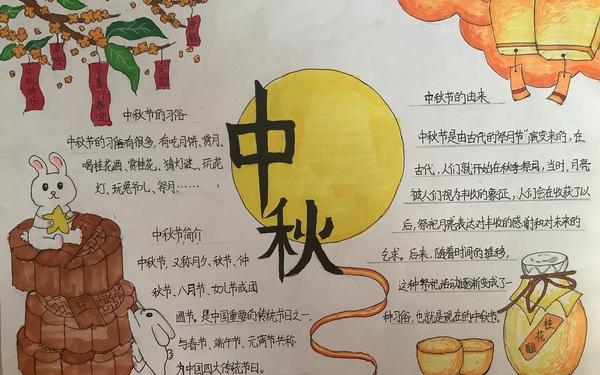 中秋
中秋节的习俗
中秋节的习俗有很多，有吃月饼、赏月、
喝桂花酒、赏桂花、猜灯谜、玩花
灯、玩兔爷儿、祭月……
中秋节简介
中秋节，又称月夕、秋节、仲
秋节、八月节、女儿节或团
圆节。是中国重要的传统节日之一，
与春节、端午节、元宵节共称
为中国四大传统节日。
中秋节的由来
中秋节是由古代的“祭月节”演变来的，在
古代，人们就开始在秋季祭月，当时，月亮
被人们视为丰收的象征，人们会在收获了以
后，祭祀月亮表达对丰收的感谢和对未来的
乞求。后来，随着时间的推移，
这种祭祀活动逐渐变成了一
种习俗，也就是现在的中秋节。
桂花酿